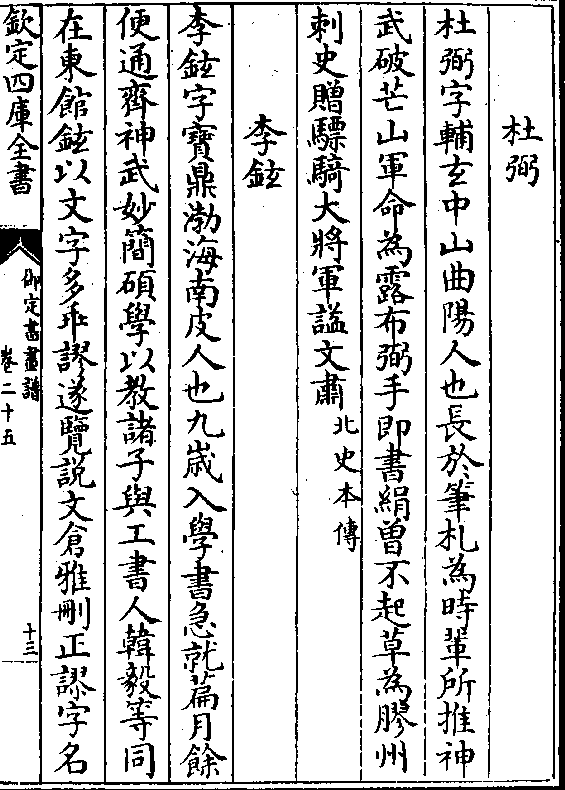 杜弼
杜弼字輔玄中山曲陽人也長於筆札為時輩所推神
武破芒山軍命為露布弼手即書絹曽不起草為膠州
刺史贈驃騎大將軍諡文肅北史本傳
李鉉
李鉉字寶鼎渤海南皮人也九歲入學書急就篇月餘
便通齊神武妙簡碩學以教諸子與工書人韓毅等同
在東館鉉以文字多乖謬遂覽說文倉雅刪正謬字名
欽定四庫全書
御定書畫譜
卷二十五
十三